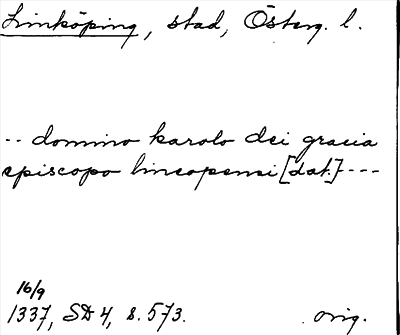 Linköping, stad, Österg. l.
-- domino karolo dei gracia
episcopo lincopensi [dat.] ----
16/9
1337, SD 4, s. 573. orig.